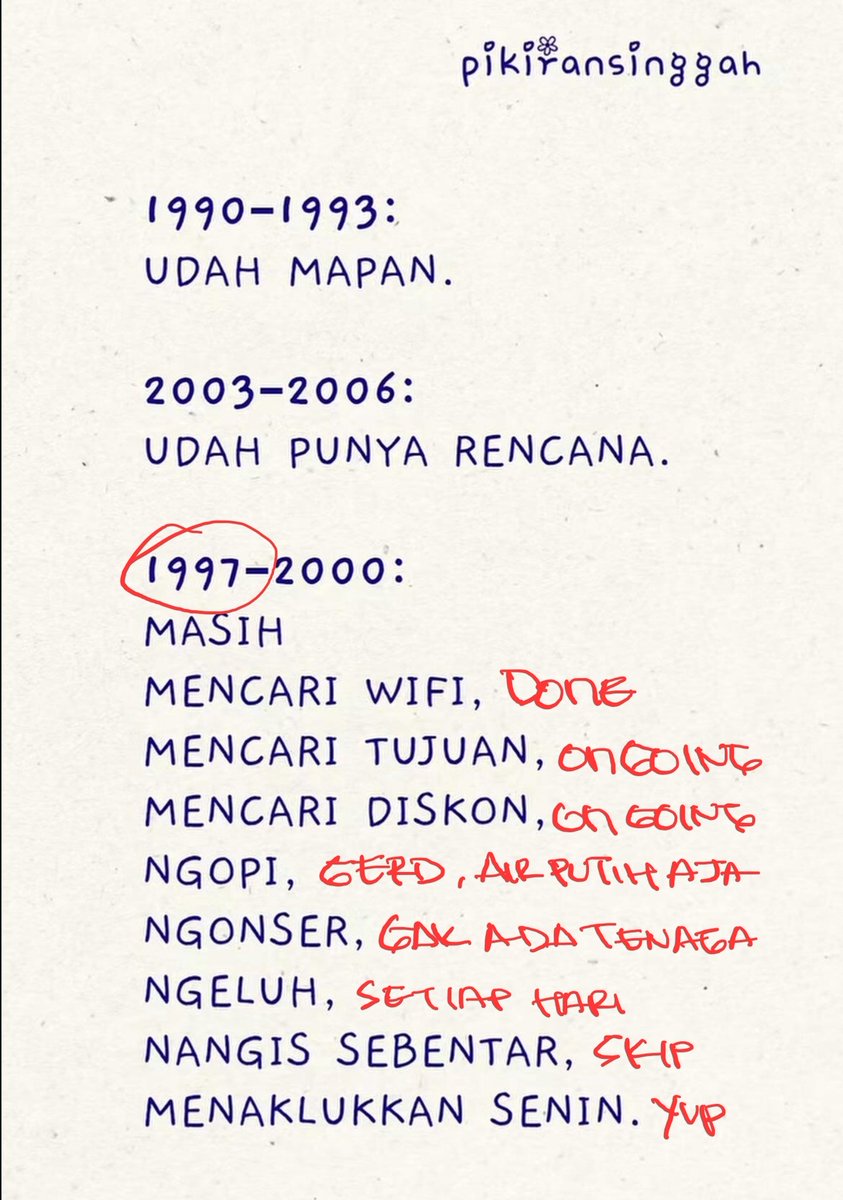 pikiransinggah
1990-1993:
UDAH MAPAN.
2003-2006:
UDAH PUNYA RENCANA.
1997-2000:
MASIH
MENCARI WIFI, DONE
MENCARI TUJUAN, ONGOING
MENCARI DISKON, ONGOING
NGOPI, GERD, AIR PUTIH AJA
NGONSER, GAK ADA TENAGA
NGELUH, SETIAP HARI
NANGIS SEBENTAR, SKIP
MENAKLUKKAN SENIN. YUP